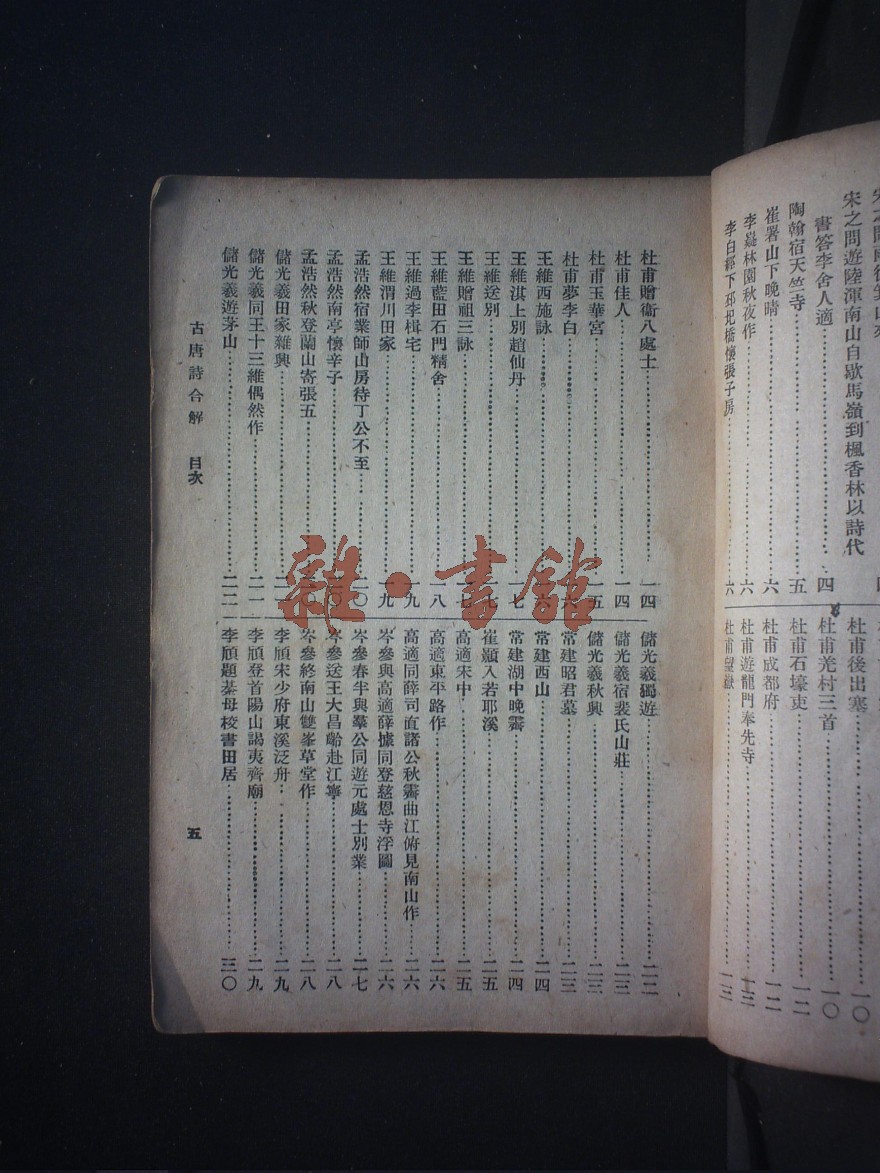 宋之問遊陸渾南山自歇馬嶺到楓香林以詩代
書答李舍人適……四
陶翰宿天竺寺……五
崔署山下晚晴……六
李嶷林園秋夜作……六
李白經下邳圯橋懷張子房……六
杜甫後出塞……一〇
杜甫羌村三首……一〇
杜甫石壕吏……一二
杜甫成都府……一二
杜甫遊龍門奉先寺……一三
杜甫望嶽……一三
杜甫贈衛八處士……一四
杜甫佳人……一四
杜甫玉華宮……一五
杜甫夢李白……
王維西施詠……
王維淇上別趙仙舟……一七
王維送別……一七
王維贈祖三詠……一七
王維藍田石門精舍……一八
王維過李楫宅……一九
王維渭川田家……一九
孟浩然宿業師山房待丁公不至……二〇
孟浩然南亭懷辛子……二〇
孟浩然秋登蘭山寄張五……二〇
儲光羲田家雜興……二一
儲光羲同王十三維偶然作……二一
儲光羲遊茅山……二二
儲光羲獨遊……二二
儲光羲宿裴氏山莊……二三
儲光羲秋興……二三
常建昭君墓……二三
常建西山……二四
常建湖中晚霽……二四
崔顥入若耶溪……二五
高適宋中……二五
高適東平路作……二六
高適同薛司直諸公秋霽曲江俯見南山作……二六
岑參與高適薛據同登慈恩寺浮圖……二六
岑參春半與羣公同遊元處士別業……二七
岑參送王大昌齡赴江寧……二八
岑參終南山雙峯草堂作……二八
李頎宋少府東溪泛舟……二九
李頎登首陽山謁夷齊廟……二九
李頎題綦母校書田居……三〇
古唐詩合解　目次
五
雜·書館